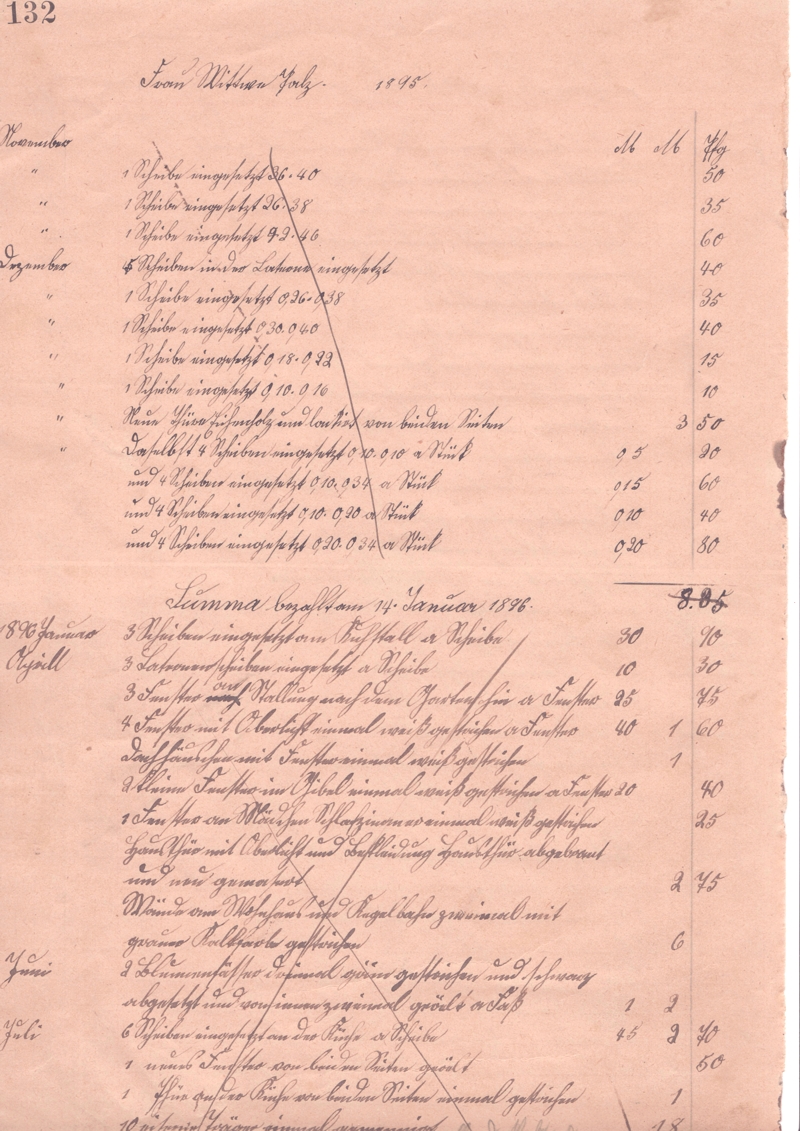 132
Frau Wittwe Falz. 1895.
November M M Pfg
" 1 Scheibe eingesetzt 36·40 50
" 1 Scheibe eingesetzt 26·38 35
" 1 Scheibe eingesetzt 42·46 60
Dezember 5 Scheiben in der Laterne eingesetzt 40
" 1 Scheibe eingesetzt 0,26·0,38 35
" 1 Scheibe eingesetzt 0,30·0,40 40
" 1 Scheibe eingesetzt 0,18·0,22 15
" 1 Scheibe eingesetzt 0,10·0,16 10
" Neue Thüre Eichenholz und lackirt von beiden Seiten 3 50
" Daselbst 4 Scheiben eingesetzt 0,10·0,10 a Stück 0,5 20
und 4 Scheiben eingesetzt 0,10·0,34 a Stück 0,15 60
und 4 Scheiben eingesetzt 0,10·0,20 a Stück 0,10 40
und 4 Scheiben eingesetzt 0,20·0,34 a Stück 0,20 80
Summa bezahlt am 14. Januar 1896. 8.85
1896 Januar 3 Scheiben eingesetzt am Kuhstall a Scheibe 30 90
Aprill 3 Laternenscheiben eingesetzt a Scheibe 10 30
3 Fenster an Stallung nach dem Garten hin a Fenster 25 75
4 Fenster mit Oberlicht einmal weiß gestrichen a Fenster 40 1 60
Dachhäuschen mit Fenster einmal weiß gestrichen 1
2 kleine Fenster im Gibel einmal weiß gestrichen a Fenster 20 40
1 Fenster an Mädchen Schlafzimmer einmal weiß gestrichen 25
Hausthür mit Oberlicht und Bekleidung Hausthür abgebrant
und neu gemasert 2 75
Wände am Wohnhaus und Kegelbahn zweimal mit
grauer Kalkfarbe gestrichen 6
Juni 2 Blumenfässer dreimal grün gestrichen und schwarz
abgesetzt und von innen zweimal geöelt a Faß 1 2
Juli 6 Scheiben eingesetzt an der Küche a Scheibe 45 2 70
1 neues Fenster von beiden Seiten geöelt 50
1 Thür an der Küche von beiden Seiten einmal gestrichen 1
10 eiserne Träger einmal 18